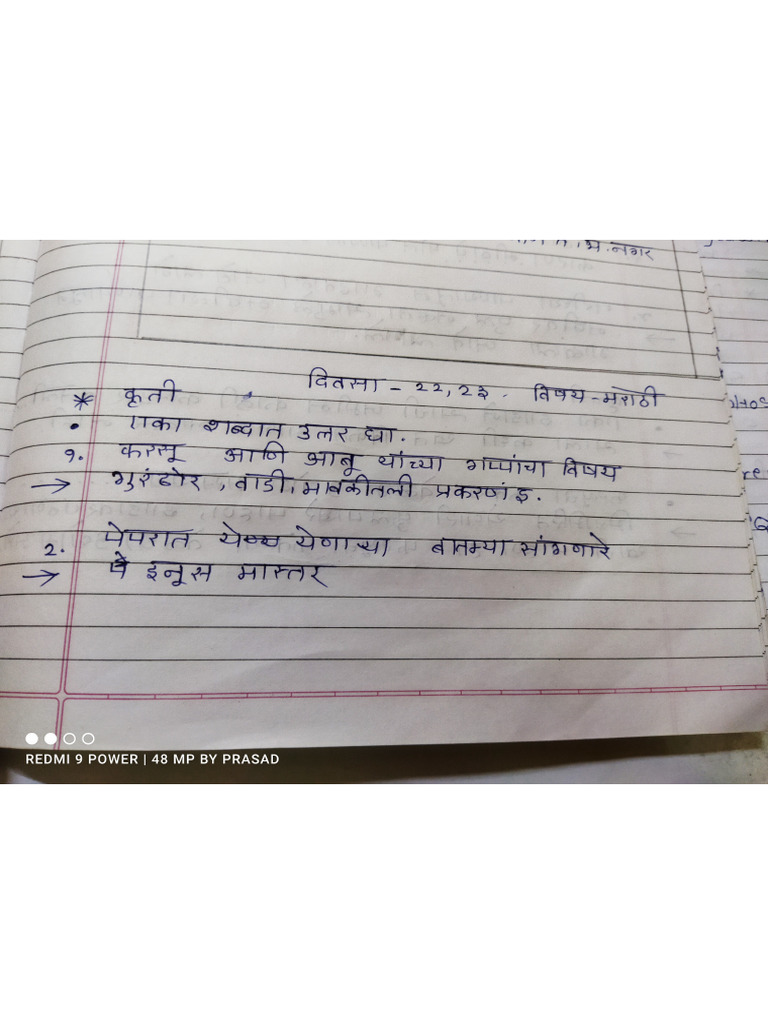 भ. नगर
दिवसा - २२, २३. विषय - मराठी
* कृती
• एका शब्दात उत्तर द्या.
१. करसू आणि आबू यांच्या गप्पांचा विषय
→ गुरंढोर, वाडी, भावकीतली प्रकरणं इ.
2. पेपरात येणाऱ्या बातम्या सांगणारे
→ इनूस मास्तर
REDMI 9 POWER | 48 MP BY PRASAD